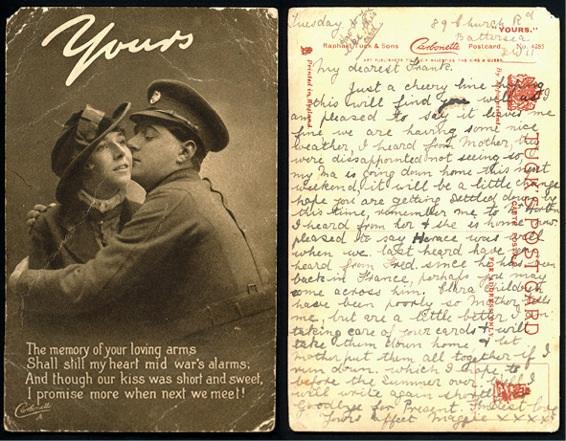 Yours
The memory of your loving arms
Shall still my heart mid war's alarms;
And though our kiss was short and sweet,
I promise more when next we meet!
Carbonette
Tuesday
89 Church Rd
Battersea
"YOURS."
Raphael Tuck & Sons Carbonette Postcard No. 4285
Printed in England
TUCK'S POST CARD
CARTE POSTALE
My dearest Frank.
Just a cheery line hoping
this will find you well as I
am pleased to say it leaves me
fine we are having some nice
weather, I heard from Mother, they
were dissappointed not seeing so
my Ma is going down home this next
weekend it will be a little change
hope you are getting settled down by
this time, remember me to
I heard from her & she is home now
pleased to say Horace was
when we last heard have you
heard from Fred since he has been
back in France, perhaps you may
come across him. Clara & children
have been poorly so Mother tells
me, but are a little better I am
taking care of your cards & will
take them down home & let
Mother put them all together if I
run down. which I hope to
before the Summer over. I
will write again shortly
Goodbye for Present. Fondest love
Yours affect Maggie xxxxx